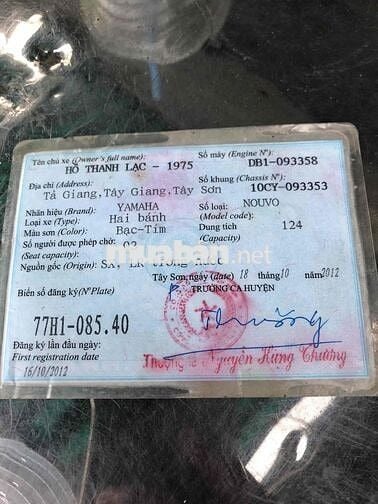 Tên chủ xe (Owner's full name): Số máy (Engine Nº):
HỒ THANH LẠC - 1975 DB1-093358
Địa chỉ (Address): Số khung (Chassis Nº)
Tả Giang, Tây Giang, Tây Sơn 10CY-093353
Nhãn hiệu (Brand): YAMAHA Số loại: NOUVO
Loại xe (Type): Hai bánh (Model code):
Màu sơn (Color): Bạc-Tím Dung tích 124
Số người được phép chở: 02 (Capacity)
(Seat capacity)
muaban.net
Nguồn gốc (Origin): SX, LR trong nước
Tây Sơn, ngày (date) 18 tháng 10 năm 2012
Biển số đăng ký (Nº Plate) TRƯỞNG CA HUYỆN
77H1-085.40
Đăng ký lần đầu ngày:
First registration date
16/10/2012
Thượng tá Nguyễn Hùng Chương